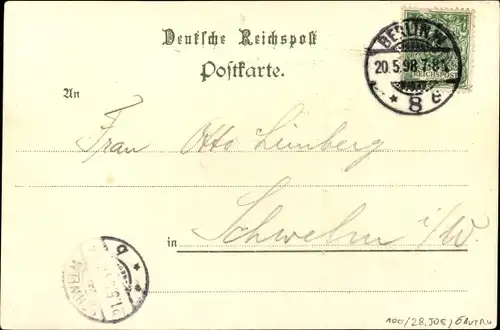 Deutsche Reichspost
Postkarte.
BERLIN W
20.5.98.7-8N.
* 8 e *
REICHSPOST
An
Frau Otto Limberg
in Schwelm i/W.
SCHWELM
21.5
b
100/28,JOE/